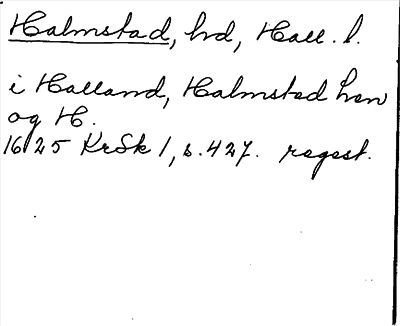 Halmstad, hd, Hall. l.
i Halland, Halmstad hrn
og H.
1625 KrSk 1, s. 427. regest.